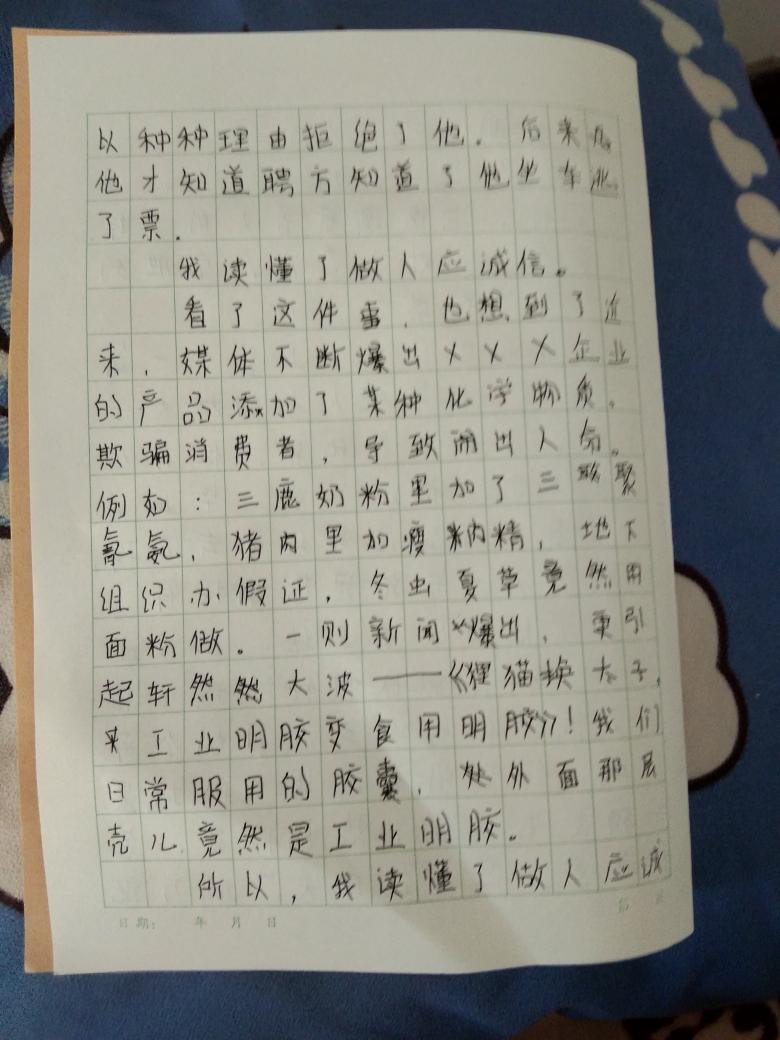 以种种理由拒绝了他。后来
他才知道聘方知道了他坐车逃
了票。
我读懂了做人应诚信。
看了这件事，也想到了近
来，媒体不断爆出XXX企业
的产品添加了某种化学物质，
欺骗消费者，导致闹出人命。
例如：三鹿奶粉里加了三聚
氰氨，猪肉里加瘦肉精，地下
组织办假证，冬虫夏草竟然用
面粉做。一则新闻爆出，更引
起轩然然大波——《狸猫换太子，
工业明胶变食用明胶》！我们
日常服用的胶囊，处外面那层
壳儿竟然是工业明胶。
所以，我读懂了做人应诚
日期： 年 月 日